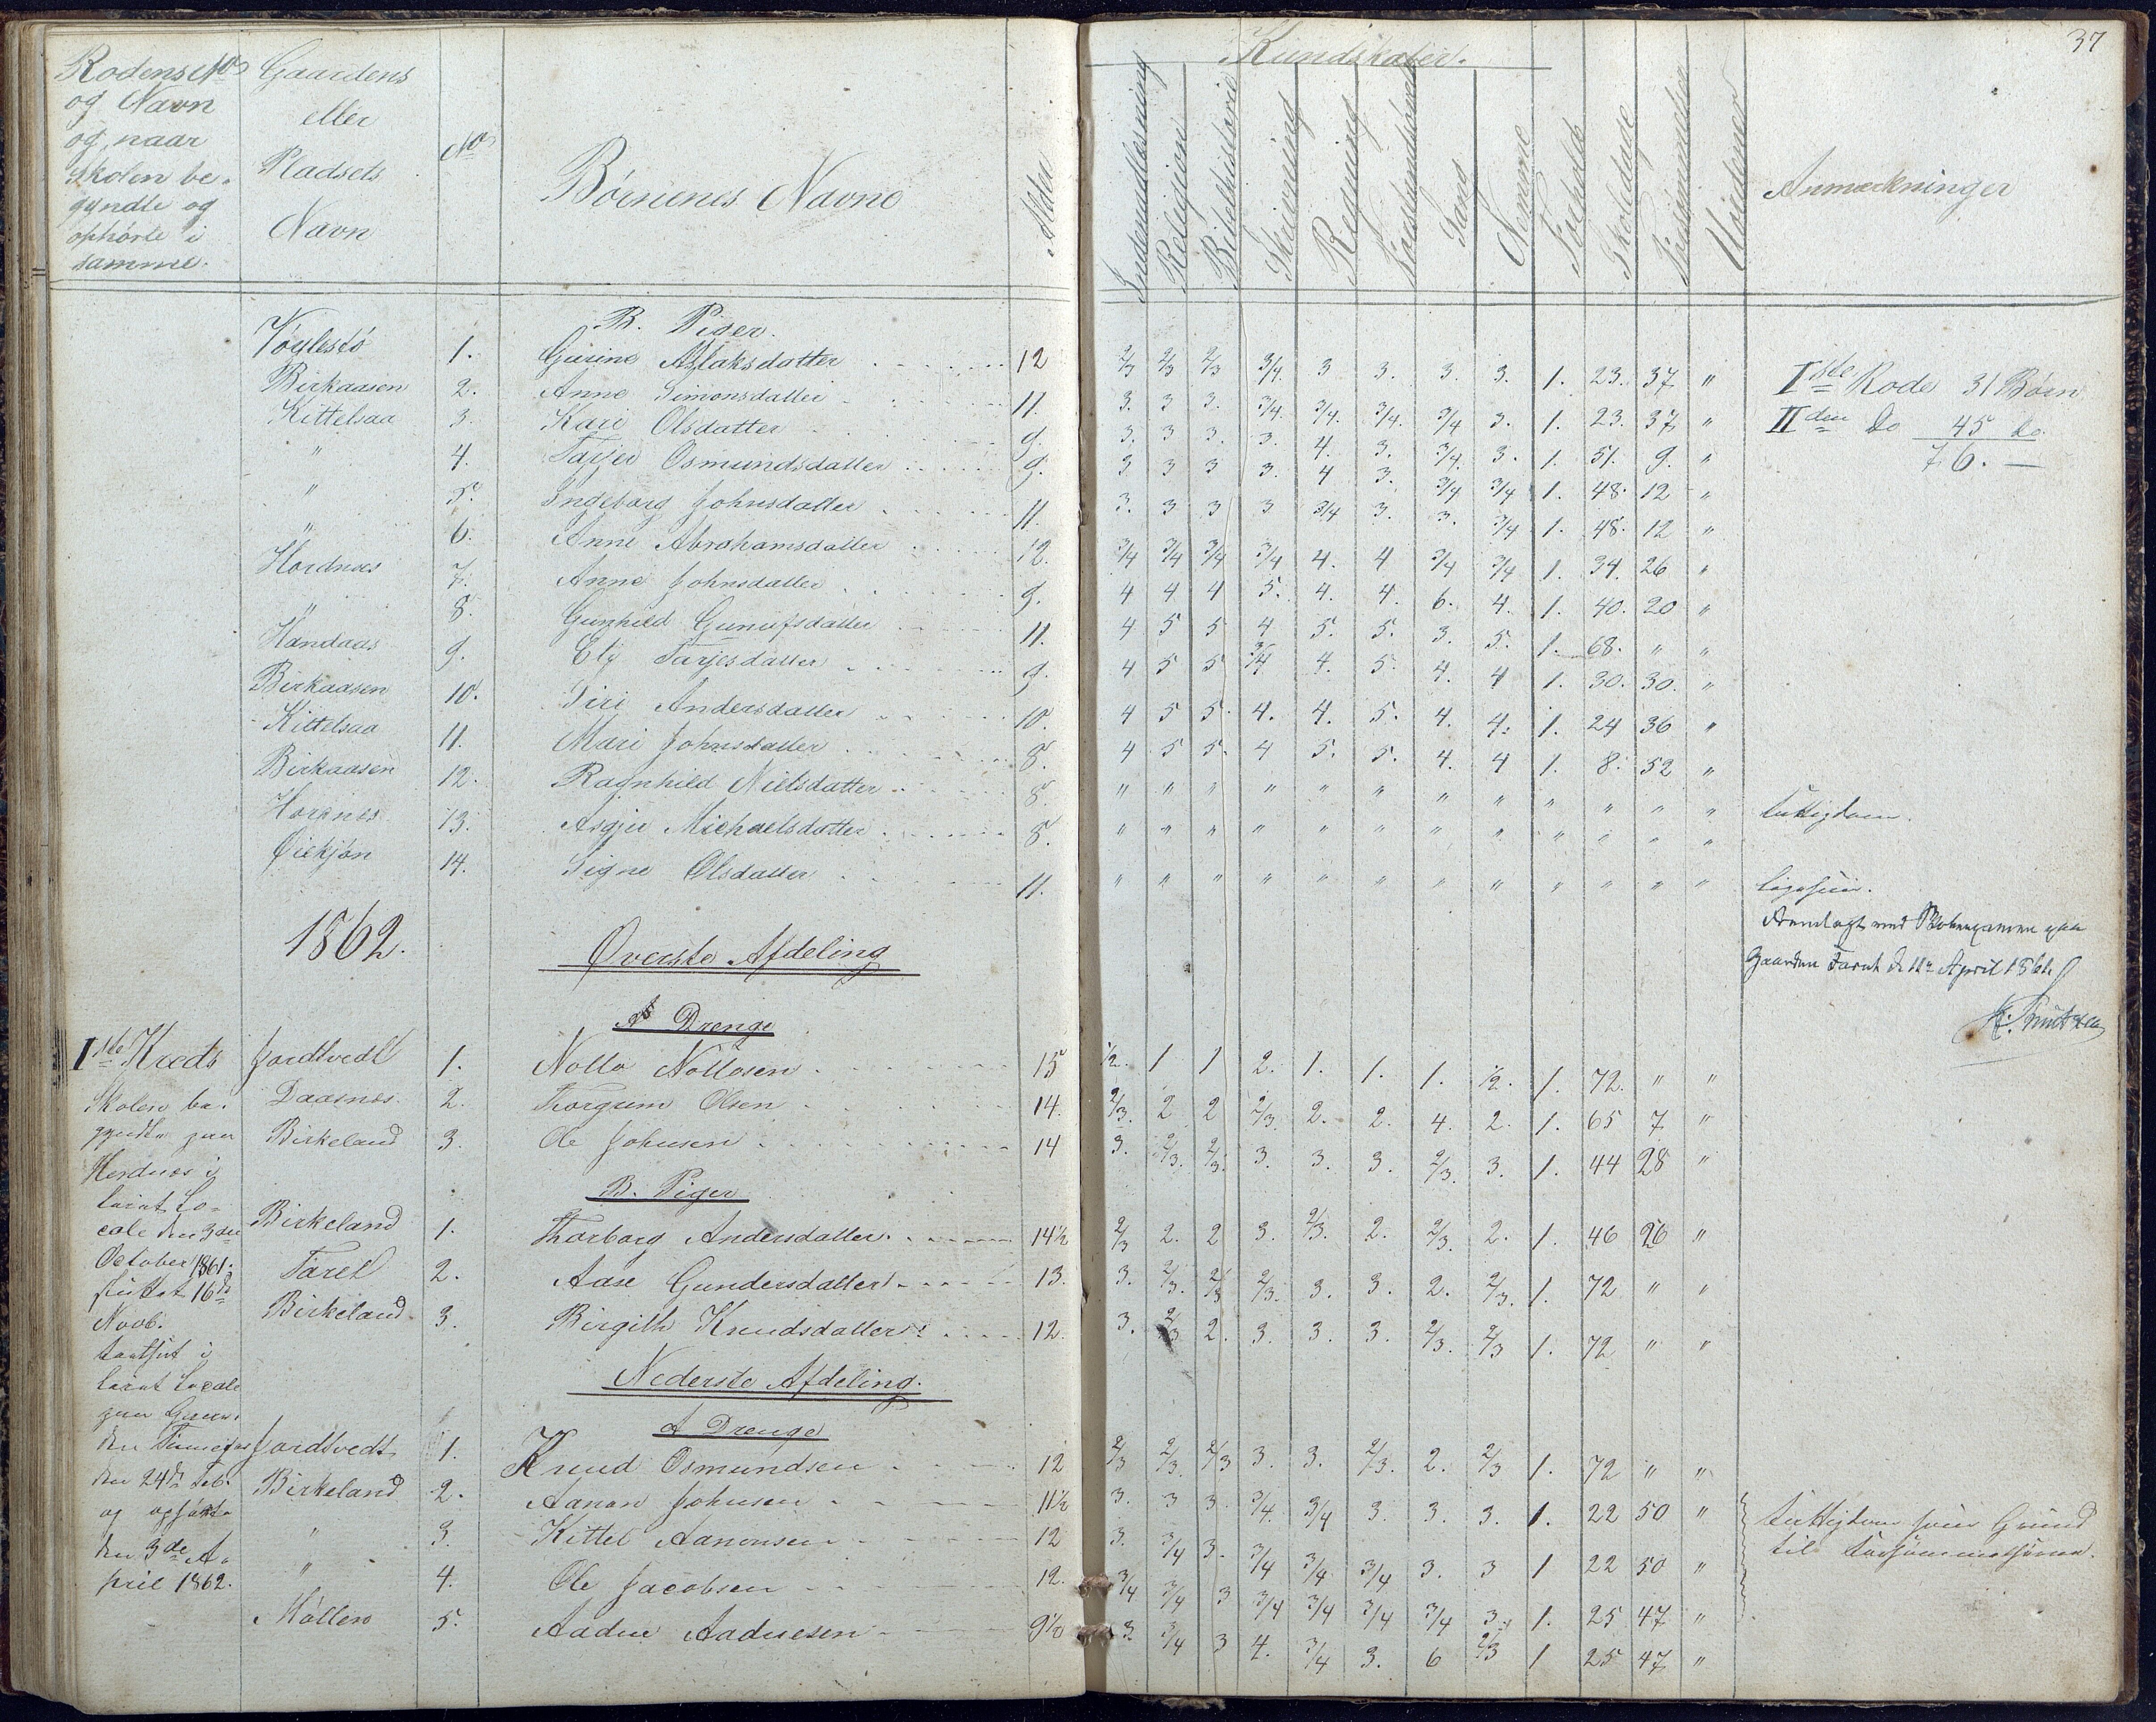 37
Kundskaber.
Rodens No og Navn og naar Skolen begyndte og ophørte i samme.
Gaardens eller Pladsets Navn
No
Børnenes Navne
Alder
Indenadlæsning
Religion
Bibelhistorie
Skrivning
Regning
Sang
Nemme
Forhold
Skoledage
Forsømmelse
Anmærkninger
B. Piger.
1. Gurine Aslaksdatter 12 2/3 2/3 2/3 3/4. 3 3. 3. 3. 1. 23. 37 "
Iste Rode 31 Børn
Birkaasen 2. Anne Simonsdatter 11. 3. 3 3. 3/4. 3/4. 3/4. 3/4 3. 1. 23. 37 "
IIden do 45 do
Kittelsaa 3. Kari Olsdatter 9. 3. 3 3. 3. 4. 3. 3/4. 3. 1. 51. 9. "
76. —
" 4. Tarjer Osmundsdatter 9. 3 3 3 3. 4 3. 3/4 3/4 1. 48. 12 "
" 5. Ingeborg Johnsdatter 11. 3. 3 3 3 3/4 3. 3. 3/4 1. 48. 12 "
" 6. Anne Abrahamsdatter 12. 3/4 3/4 3/4 3/4 4. 4 3/4 3/4 1. 34. 26 "
Hordnes 7. Anne Johnsdatter 9. 4 4 4 5. 4. 4. 6. 4. 1. 40. 20 "
" 8. Gunhild Gunufsdatter 11. 4 5 5 4 5. 5. 3. 5. 1. 68. " "
Handaas 9. Eli Tarjesdatter 9. 4 5 5 3/4 4. 5. 4. 4 1. 30. 30. "
Birkaasen 10. Siri Andersdatter 10. 4 5 5. 4. 4. 5. 4. 4. 1. 24 36 "
Kittelsaa 11. Mari Johnsdatter 8. 4 5 5. 4 5. 5. 4. 4 1. 8. 52 "
Birkaasen 12. Ragnhild Nielsdatter 8. " " " " " " " " " " " " fattigdom.
Hordnes 13. Asgjer Michaelsdatter 8. " " " " " " " " " " " "
14. Signe Olsdatter 11. " " " " " " " " " " " " ligesaa.
1862.
Øverste Afdeling
Gaarden Taret d. 11te April 1861
A Drenge
Iste Kreds Jordtvedt 1. Nollo Nollosen 15 1/2. 1 1 2. 1. 1. 1. 1/2. 1. 72. " "
Skolen be- Daasnes. 2. Thorgrim Olsen 14. 2/3. 2 2 2/3. 2. 2. 4. 2. 1. 65 7 "
gyndte paa Birkeland 3. Ole Johnsen 14 3. 2/3. 2/3. 3. 3. 3. 2/3. 3. 1. 44 28 "
Hordnes i
B. Piger
leiet Lo-
cale den 3die Birkeland 1. Thorborg Andersdatter 14½ 2/3 2. 2 3. 2/3. 2. 2/3. 2. 1. 46 26 "
October 1861.
flyttet 16de Taret 2. Aase Gundersdatter 13. 3. 2/3. 2/3 2/3. 3. 3. 2. 2/3. 1. 72 " "
Novb. Birkeland 3. Birgith Knudsdatter 12. 3. 2/3 2. 3. 3. 3. 2/3. 2/3 1. 72 " "
fortsat i
leiet Locale
Nederste Afdeling.
paa Gaar-
A Drenge
den Jordtvedt 1. Knud Osmundsen 12 2/3 2/3. 2/3 3. 3. 2/3. 2. 2/3 1. 72 " "
den 24de Feb. Birkeland 2. Aanon Johnsen 11½ 3. 3 3. 3/4. 3/4 3. 3. 3. 1. 22 50 " fattigdom som Grund
og ophørte " 3. Kittel Aanonsen 12 3. 3/4 3. 3/4 3/4 3/4 3. 3 1 22 50 " til forsømmelserne.
den 3de A- " 4. Ole Jacobsen 12. 3/4 3/4 3 3/4 3/4 3/4 3/4 3. 1. 25 47 "
pril 1862.
Møllen 5. Aadne Aadnesen 9½ 3 3/4 3 4. 3/4 3. 6 2/3 1 25 47 "